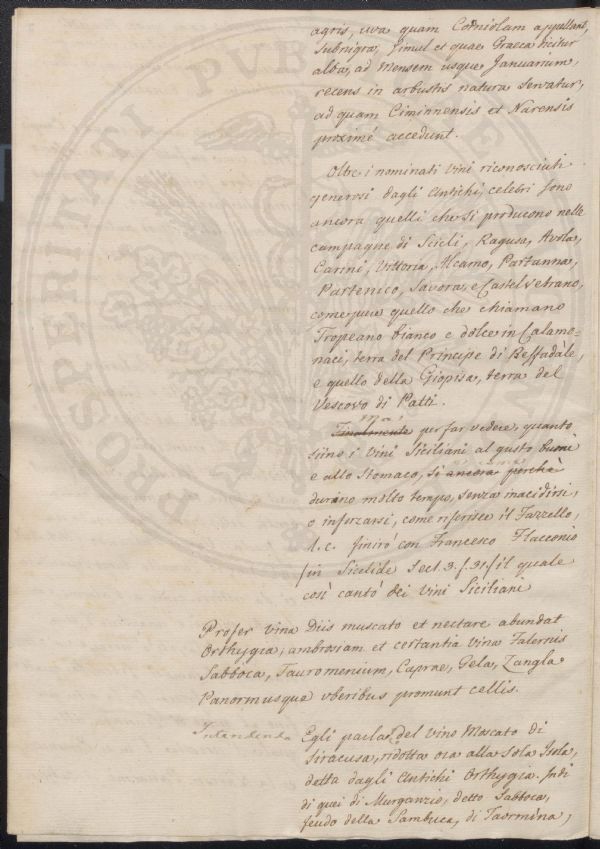 agris, uva quam Corniolam appellant,
subnigra, simul et quae Graeca dicitur
alba, ad Mensem usque Januarium,
recens in arbustis natura servatur,
ad quam Ciminnensis et Narensis
proximé accedunt.
Oltre i nominati vini riconosciuti
generosi dagli Antichi, celebri sono
ancora quelli che si producono nelle
campagne di Sicli, Ragusa, Avola,
Carini, Vittoria, Alcamo, Partanna,
Partenico, Savoca, e Castel Vetrano,
come pure quello che chiamano
Tropeano bianco e dolce in Calamo=
naci, terra del Principe di Reffadàle,
e quello della Giojisa, terra del
Vescovo di Patti.
Ma
Finalmente per far vedere, quanto
siino i Vini Siciliani al gusto buoni
e allo Stomaco, sì ancora perchè
durano molto tempo, senza inacidirsi,
o inforzarsi, come riferisce il Fazzello,
l. c. finirò con Francesco Flacconio
in Sicelide Sect. 3. f. 31. il quale
così cantò dei Vini Siciliani
Profer vina Diis muscato et nectare abundat
Orthygia, ambrosiam et certantia vina Falernis
Sabboca, Tauromenium, Caprae, Gela, Zangla
Panormusque uberibus promunt cellis.
Intendendo Egli parla del vino Moscato di
Siracusa, ridotta ora alla sola Isola,
detta dagli Antichi Orthygia. Indi
di quei di Murganzio, detto Sabboca,
feudo della Sambuca, di Taormina,
PROSPERITATI PUBLICAE